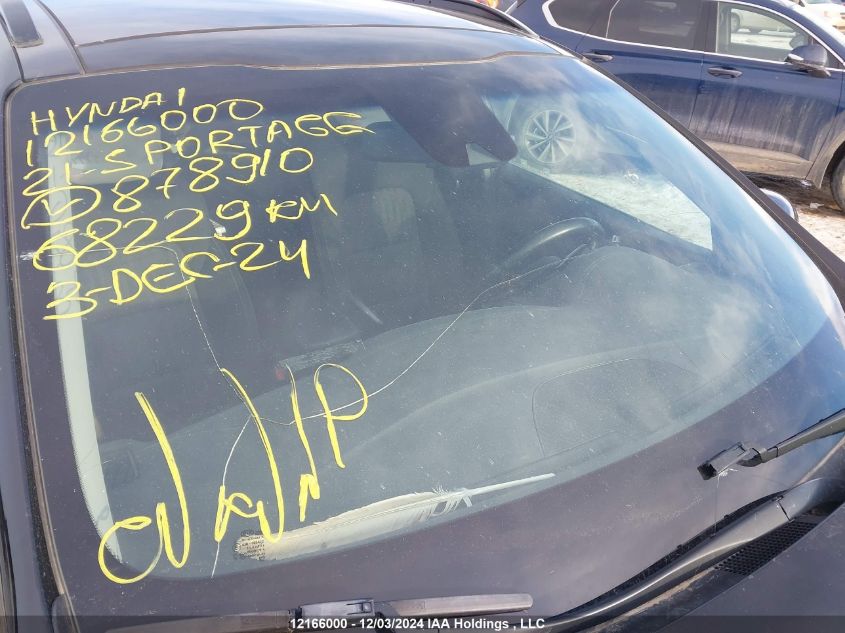 HYNDAI
12166000
21-SPORTAGE
V 878910
68229 KM
3-DEC-24
12166000 - 12/03/2024 IAA Holdings , LLC